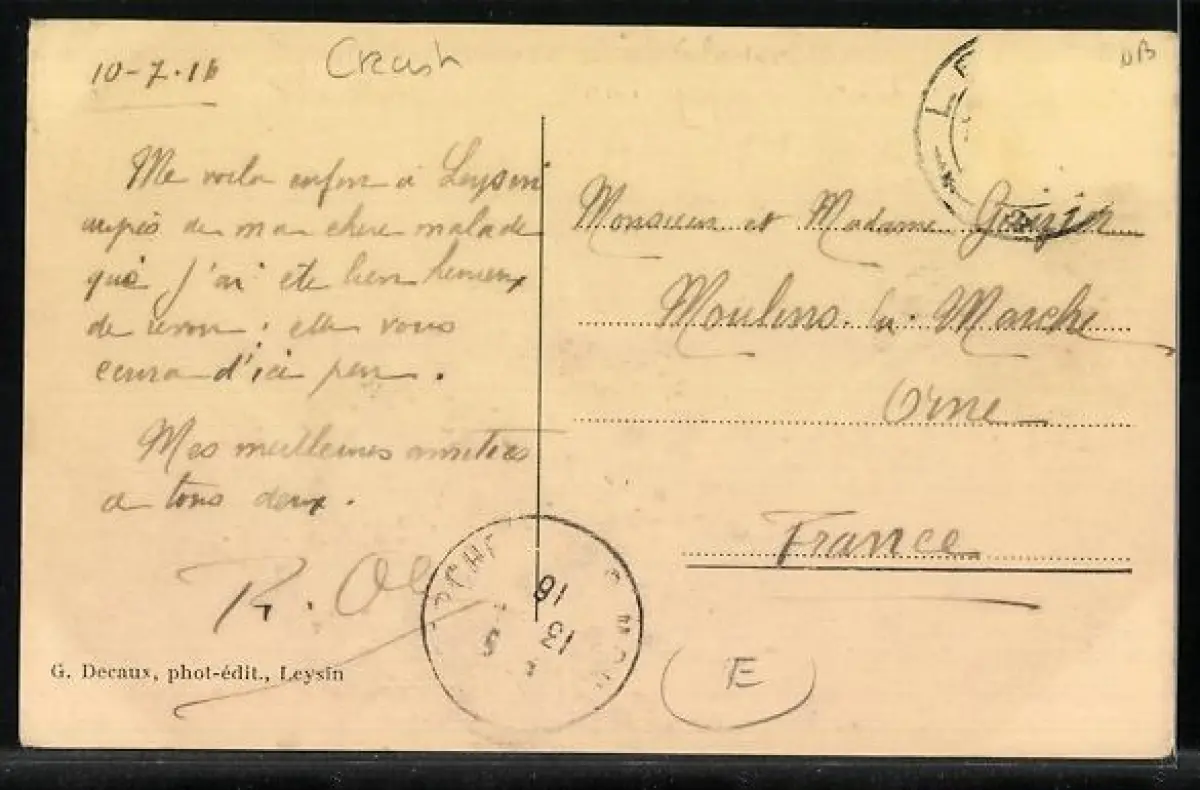 10-7-16
Crash
NB
Me voila enfin à Leysin
auprès de ma chere malade
que j'ai été bien heureux
de revoir ; elle vous
ecrira d'ici peu.
Mes meilleures amitiés
a tous deux.
R.
G. Decaux, phot-édit., Leysin
Monsieur et Madame
Moulins. la. Marche
Orne
France
RCHE
16
13
5
E